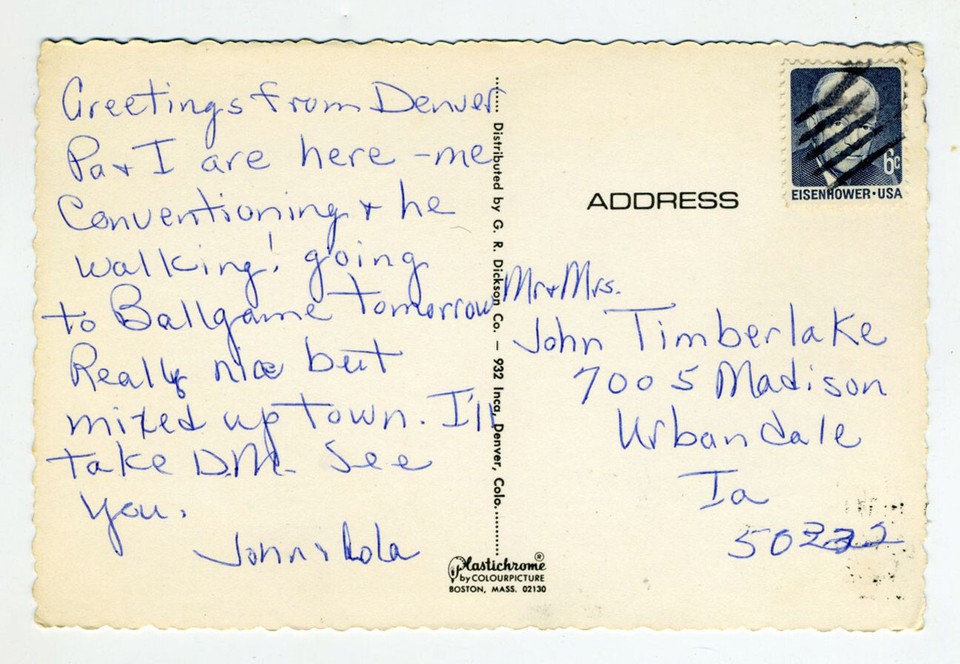 Greetings from Denver
Pa + I are here - me
Conventioning + he
walking! going
to Ballgame tomorrow
Really nice but
mixed up town. I'll
take D.M. See
you.
John & Lola
Distributed by G. R. Dickson Co. – 932 Inca, Denver, Colo.
Plastichrome®
by COLOURPICTURE
BOSTON, MASS. 02130
6c
EISENHOWER·USA
ADDRESS
Mr + Mrs.
John Timberlake
7005 Madison
Urbandale
Ia
50322